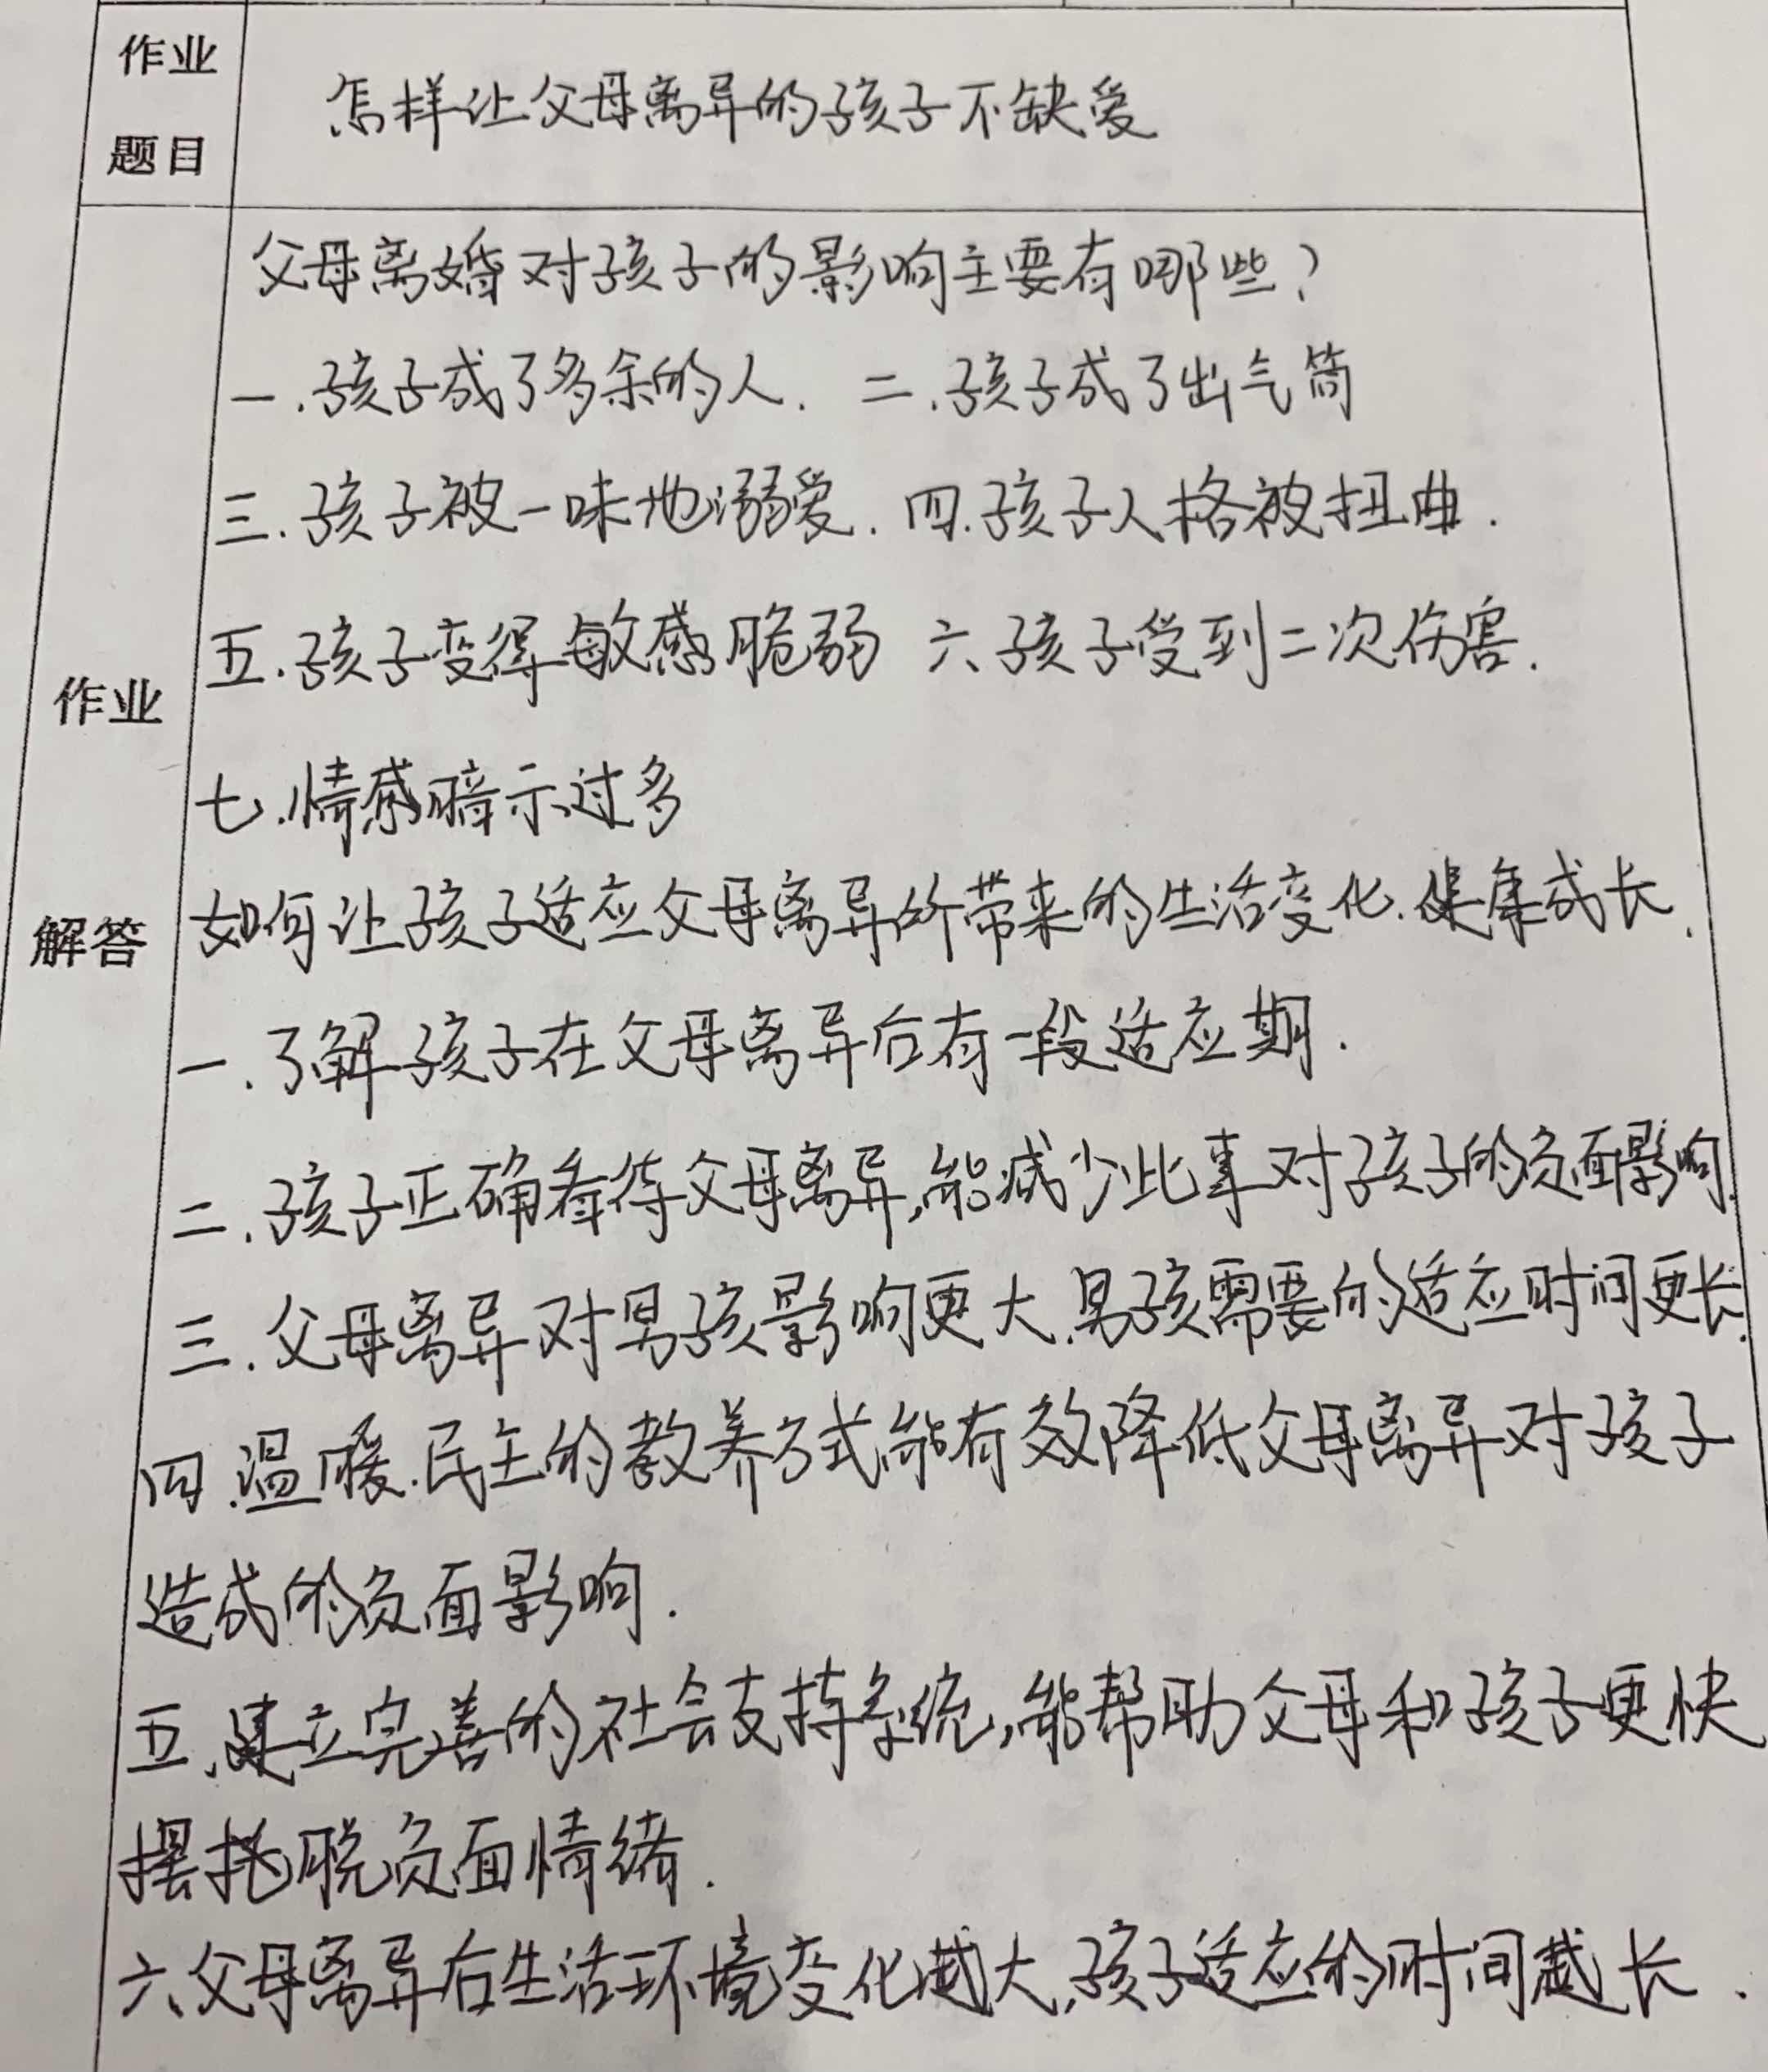 作业
题目
怎样让父母离异的孩子不缺爱
父母离婚对孩子的影响主要有哪些?
一.孩子成了多余的人. 二.孩子成了出气筒
三.孩子被一味地溺爱. 四.孩子人格被扭曲.
五.孩子变得敏感脆弱 六、孩子受到二次伤害.
作业
七.情感暗示过多
解答
如何让孩子适应父母离异所带来的生活变化.健康成长.
一.了解孩子在父母离异后有一段适应期.
二.孩子正确看待父母离异,能减少此事对孩子的负面影响.
三.父母离异对男孩影响更大.男孩需要的适应时间更长.
四.温暖.民主的教养方式能有效降低父母离异对孩子
造成的负面影响.
五.建立完善的社会支持系统,能帮助父母和孩子更快
摆托脱负面情绪.
六、父母离异后生活环境变化越大,孩子适应的时间越长.